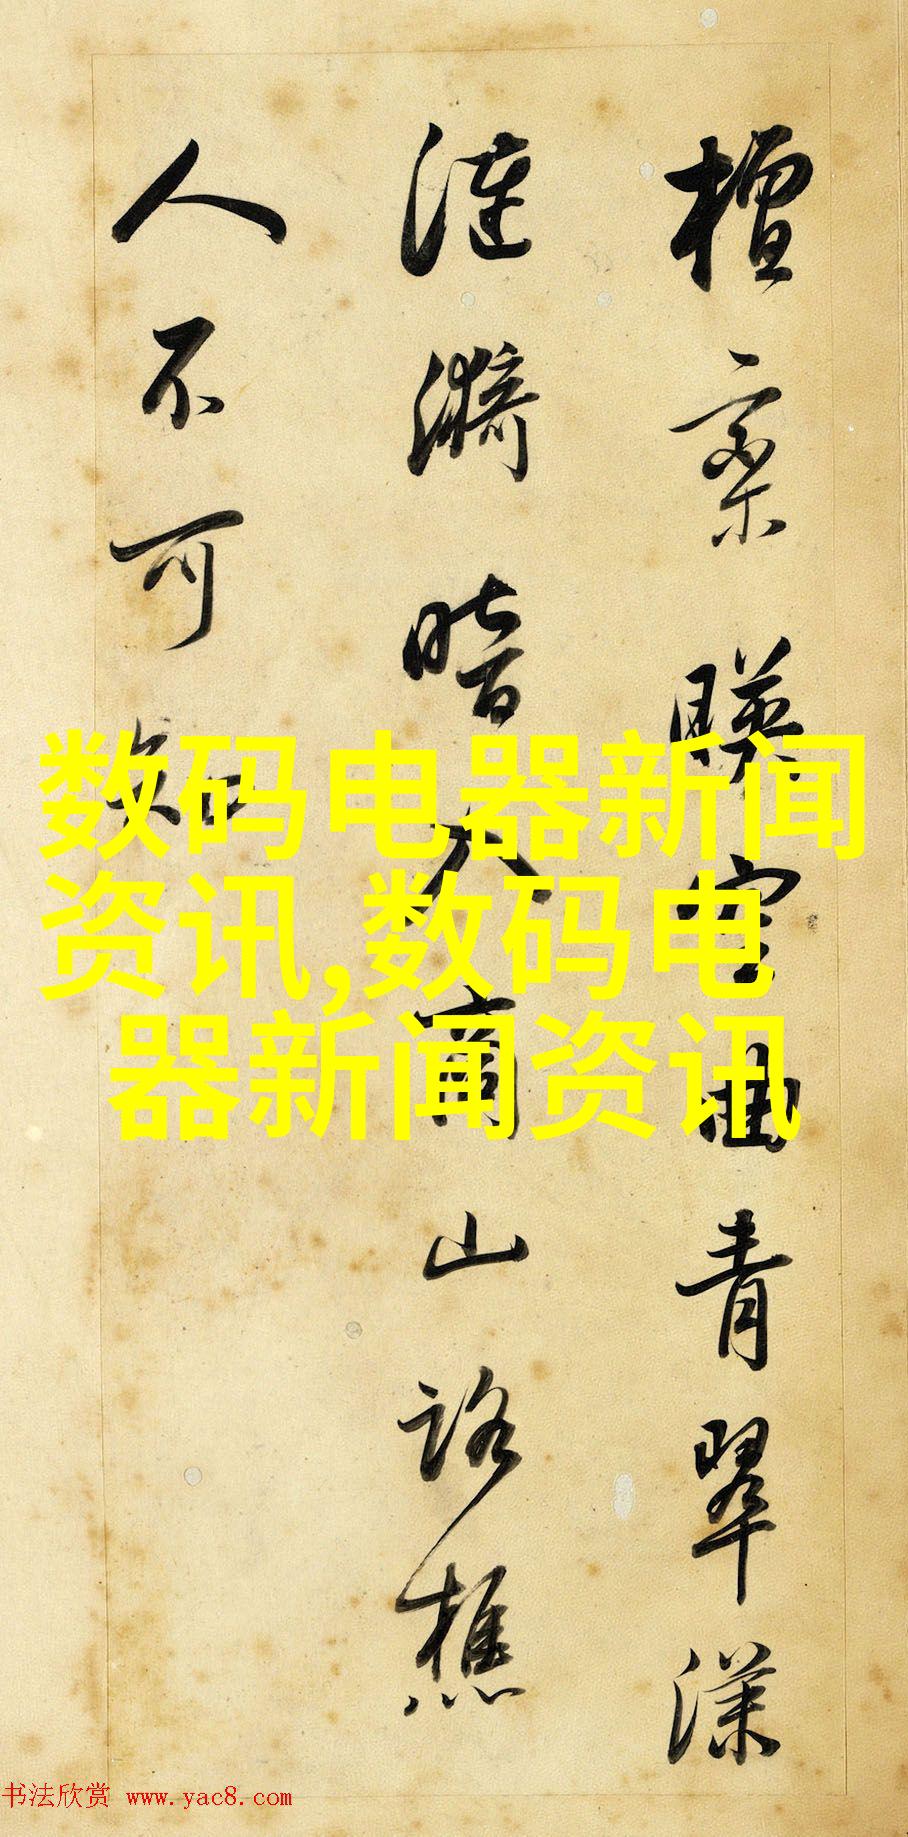 檀欒暎空曲青翠漾
漣漪暗入商山路樵
人不可知
数码电器新闻
资讯,数码电
器新闻资讯
书法欣赏 www.yac8.com